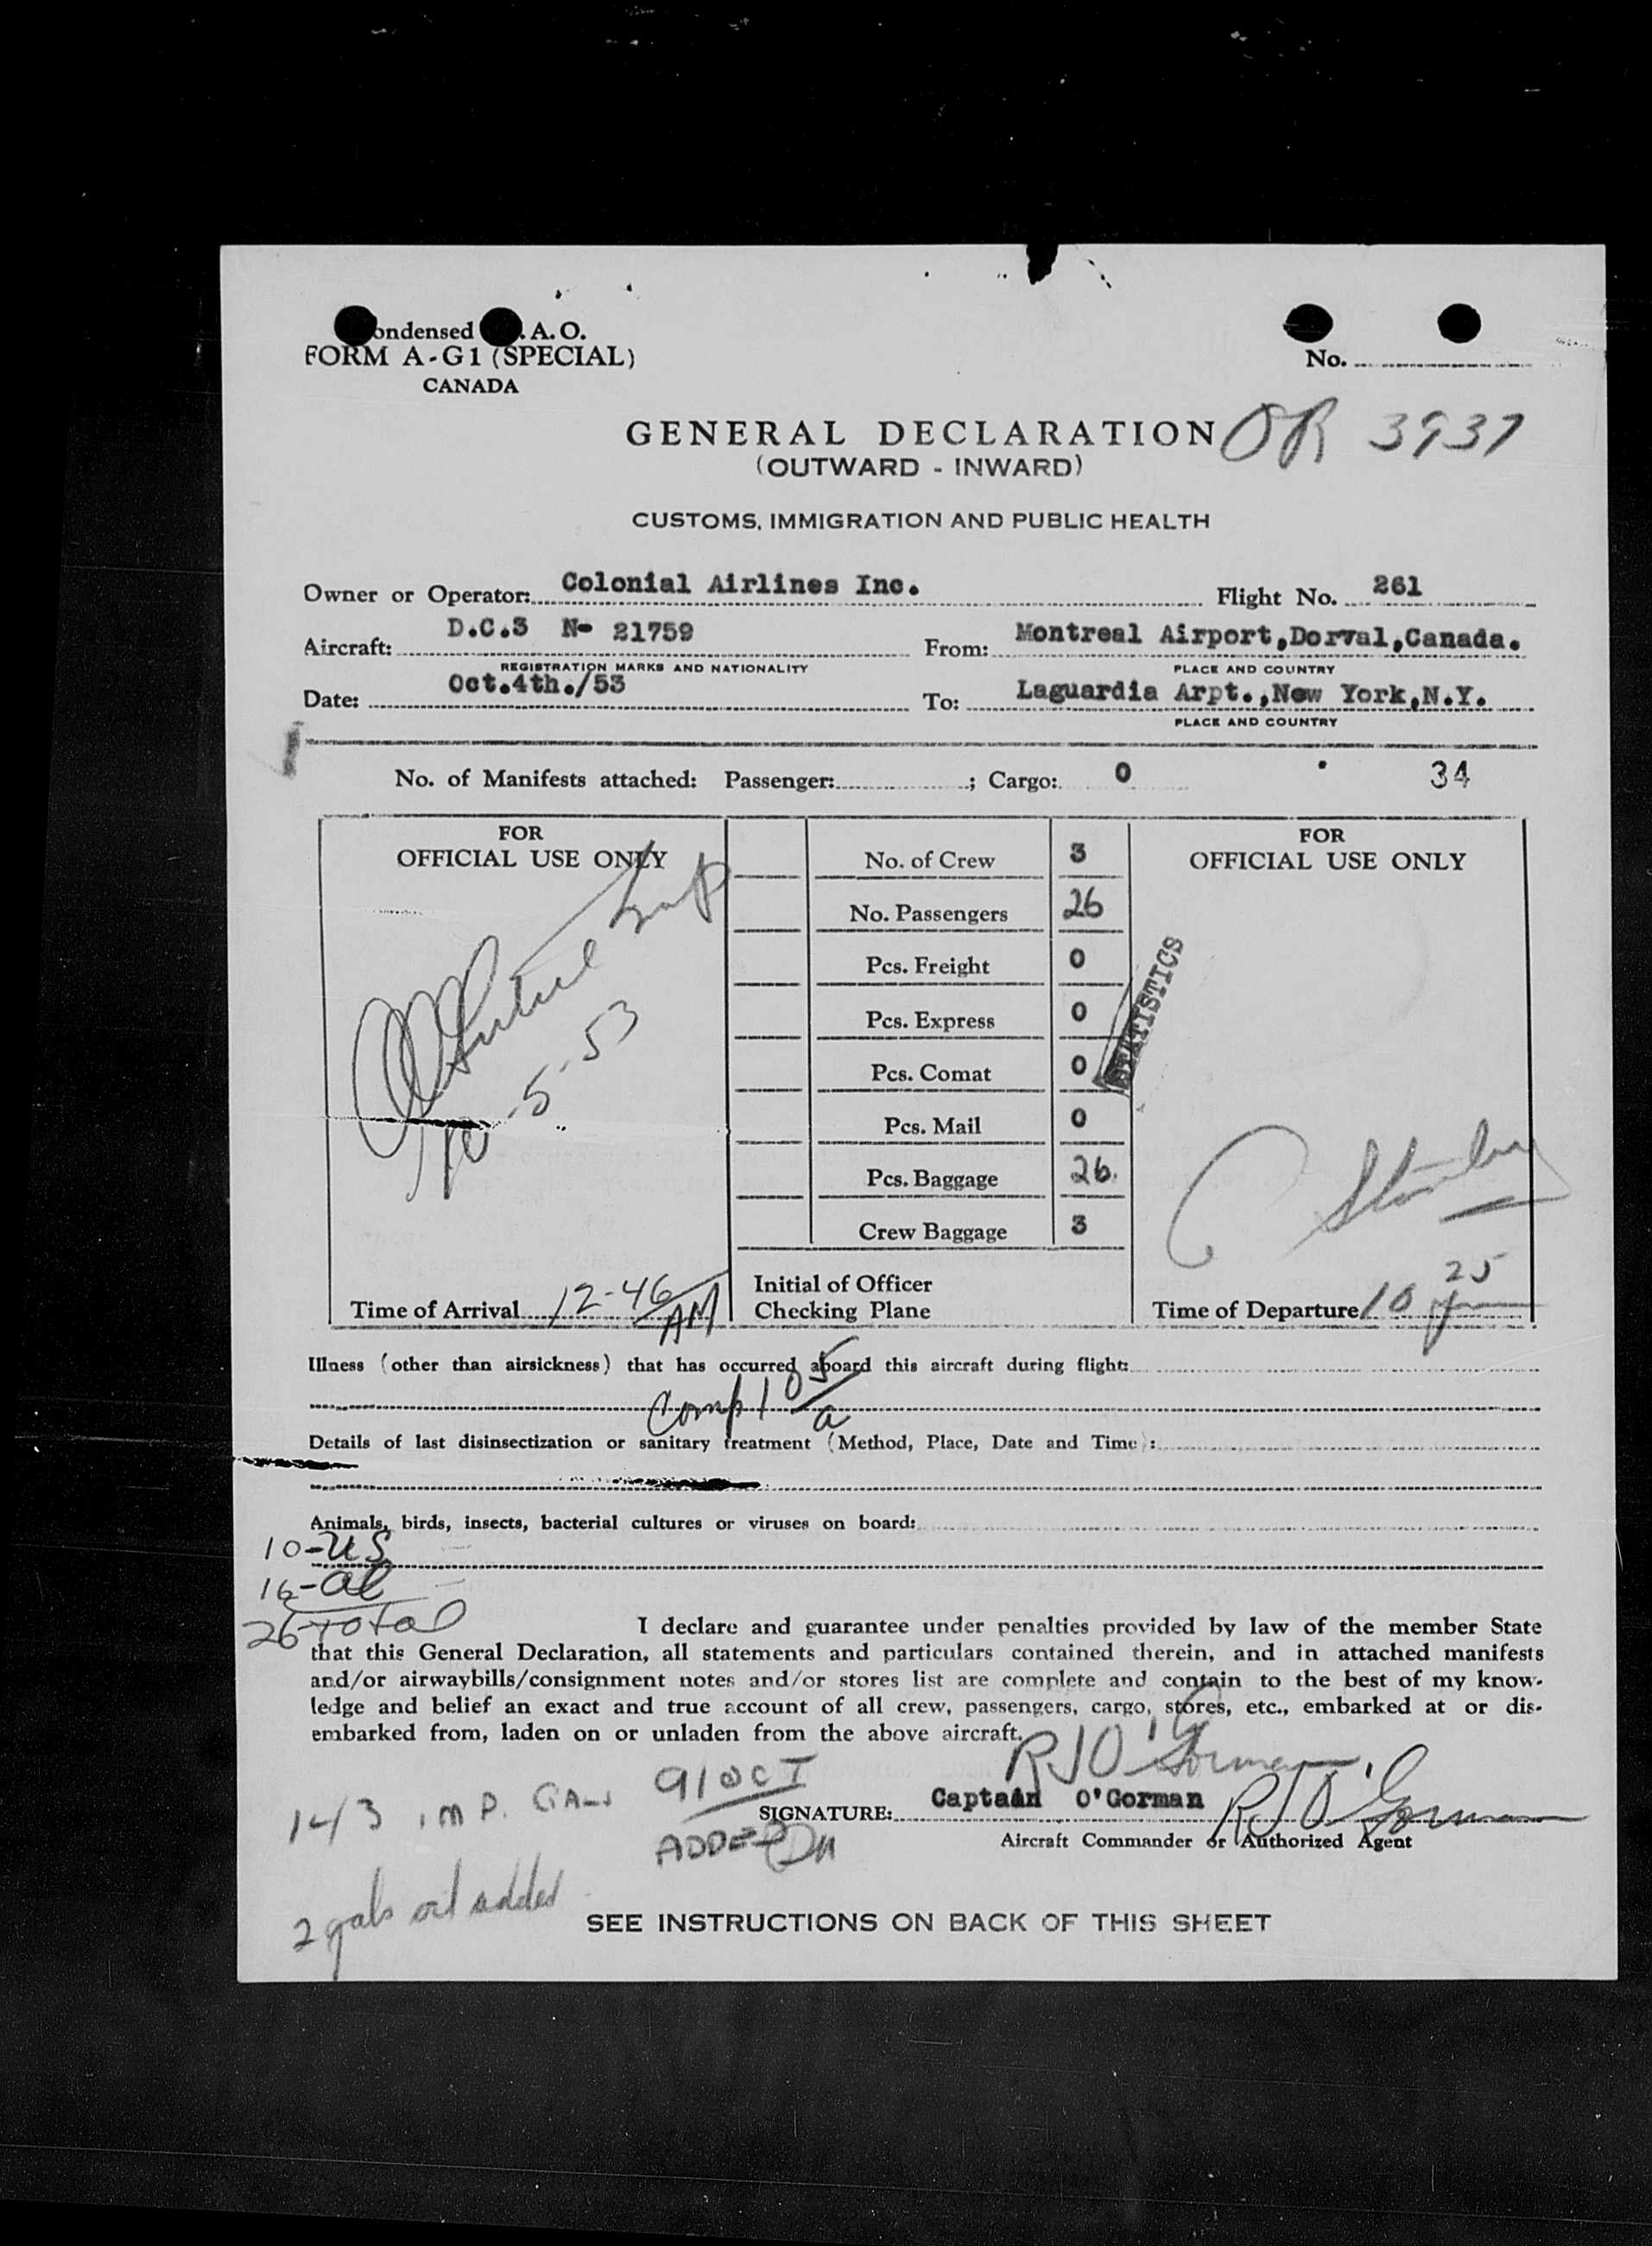 ondensed .A.O.
FORM A-G1 (SPECIAL)
CANADA
No.
GENERAL DECLARATION
OR 3937
(OUTWARD - INWARD)
CUSTOMS, IMMIGRATION AND PUBLIC HEALTH
Owner or Operator: Colonial Airlines Inc. Flight No. 261
Aircraft: D.C.3 N- 21759 From: Montreal Airport,Dorval,Canada.
REGISTRATION MARKS AND NATIONALITY PLACE AND COUNTRY
Date: Oct.4th./53 To: Laguardia Arpt.,New York,N.Y.
PLACE AND COUNTRY
No. of Manifests attached: Passenger: ; Cargo: 0 34
FOR
OFFICIAL USE ONLY
10-5-53
Time of Arrival 12-46 AM
No. of Crew 3
No. Passengers 26
Pcs. Freight 0
Pcs. Express 0
Pcs. Comat 0
Pcs. Mail 0
Pcs. Baggage 26
Crew Baggage 3
Initial of Officer
Checking Plane
STATISTICS
FOR
OFFICIAL USE ONLY
Time of Departure 10 25
Illness (other than airsickness) that has occurred aboard this aircraft during flight:
Comp 1 05 a
Details of last disinsectization or sanitary treatment (Method, Place, Date and Time):
Animals, birds, insects, bacterial cultures or viruses on board:
10-US
16-al
26 Total
I declare and guarantee under penalties provided by law of the member State
that this General Declaration, all statements and particulars contained therein, and in attached manifests
and/or airwaybills/consignment notes and/or stores list are complete and contain to the best of my know-
ledge and belief an exact and true account of all crew, passengers, cargo, stores, etc., embarked at or dis-
embarked from, laden on or unladen from the above aircraft.
RJ O'Gorman
143 IMP. GALS 91 OCT
ADDED
SIGNATURE: Captain O'Gorman RJ O'Gorman
Aircraft Commander or Authorized Agent
2 gals oil added
SEE INSTRUCTIONS ON BACK OF THIS SHEET